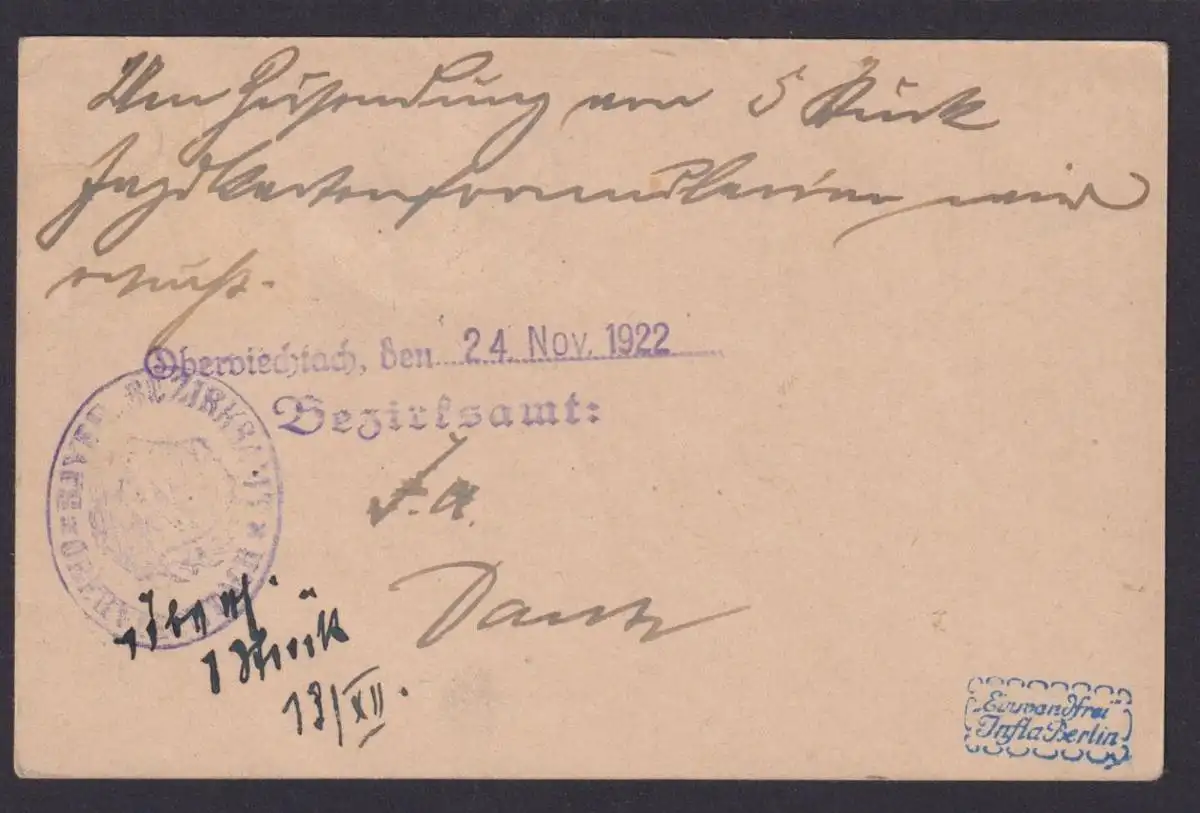 Um Zusendung von 5 Stück
Jagdkartenformularien wird
ersucht.
Oberviechtach, den 24. Nov. 1922
Bezirksamt:
BEZIRKSAMT * OBERVIECHTACH *
I. A.
1 Stück
13/XII.
"Einwandfrei"
Infla Berlin